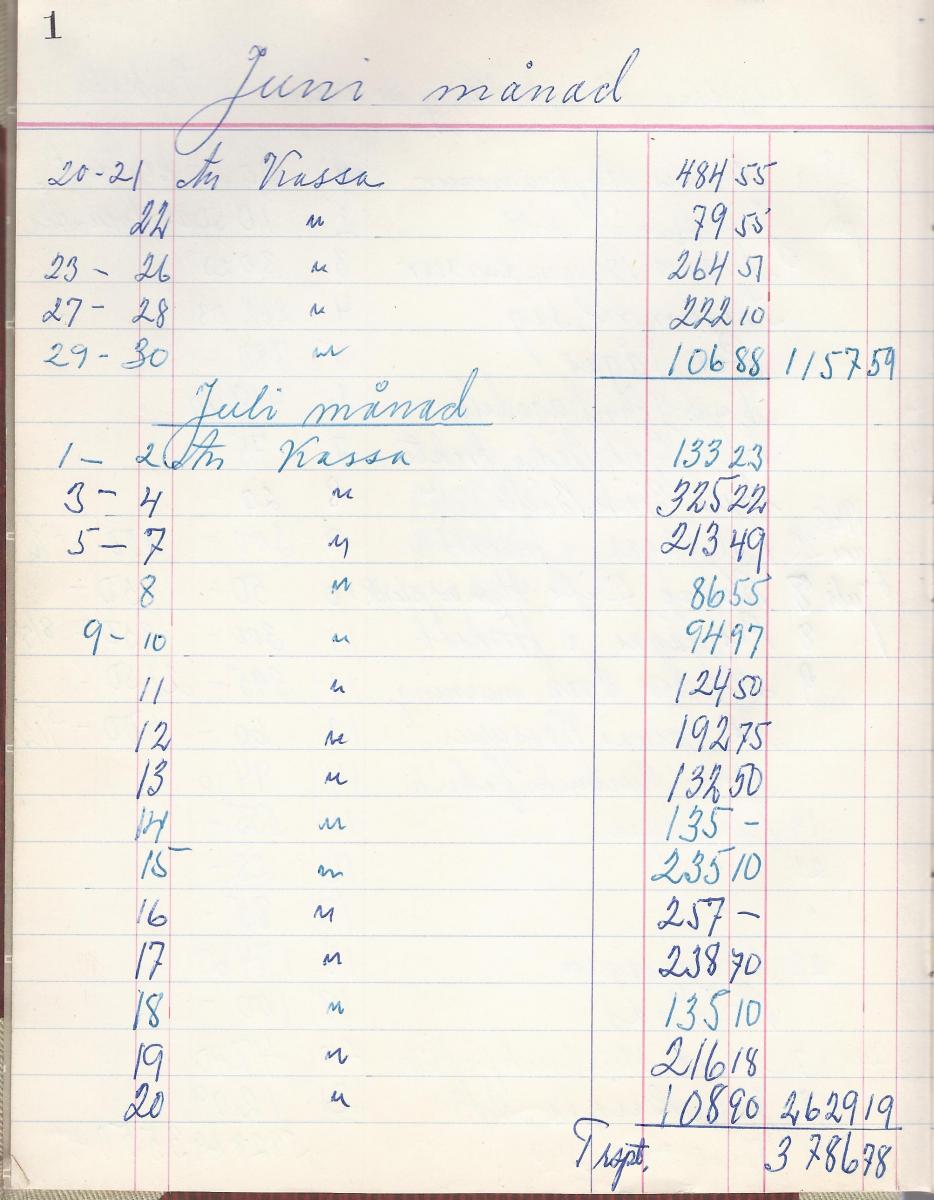 1
Juni månad
20-21 An Kassa 484 55
22 " 79 55
23 - 26 " 264 51
27 - 28 " 222 10
29 - 30 " 106 88 1157 59
Juli månad
1 - 2 An Kassa 133 23
3 - 4 " 325 22
5 - 7 " 213 49
8 " 86 55
9 - 10 " 94 97
11 " 124 50
12 " 192 75
13 " 132 50
14 " 135 -
15 " 235 10
16 " 257 -
17 " 238 70
18 " 135 10
19 " 216 18
20 " 108 90 2629 19
Trspt. 3786 78